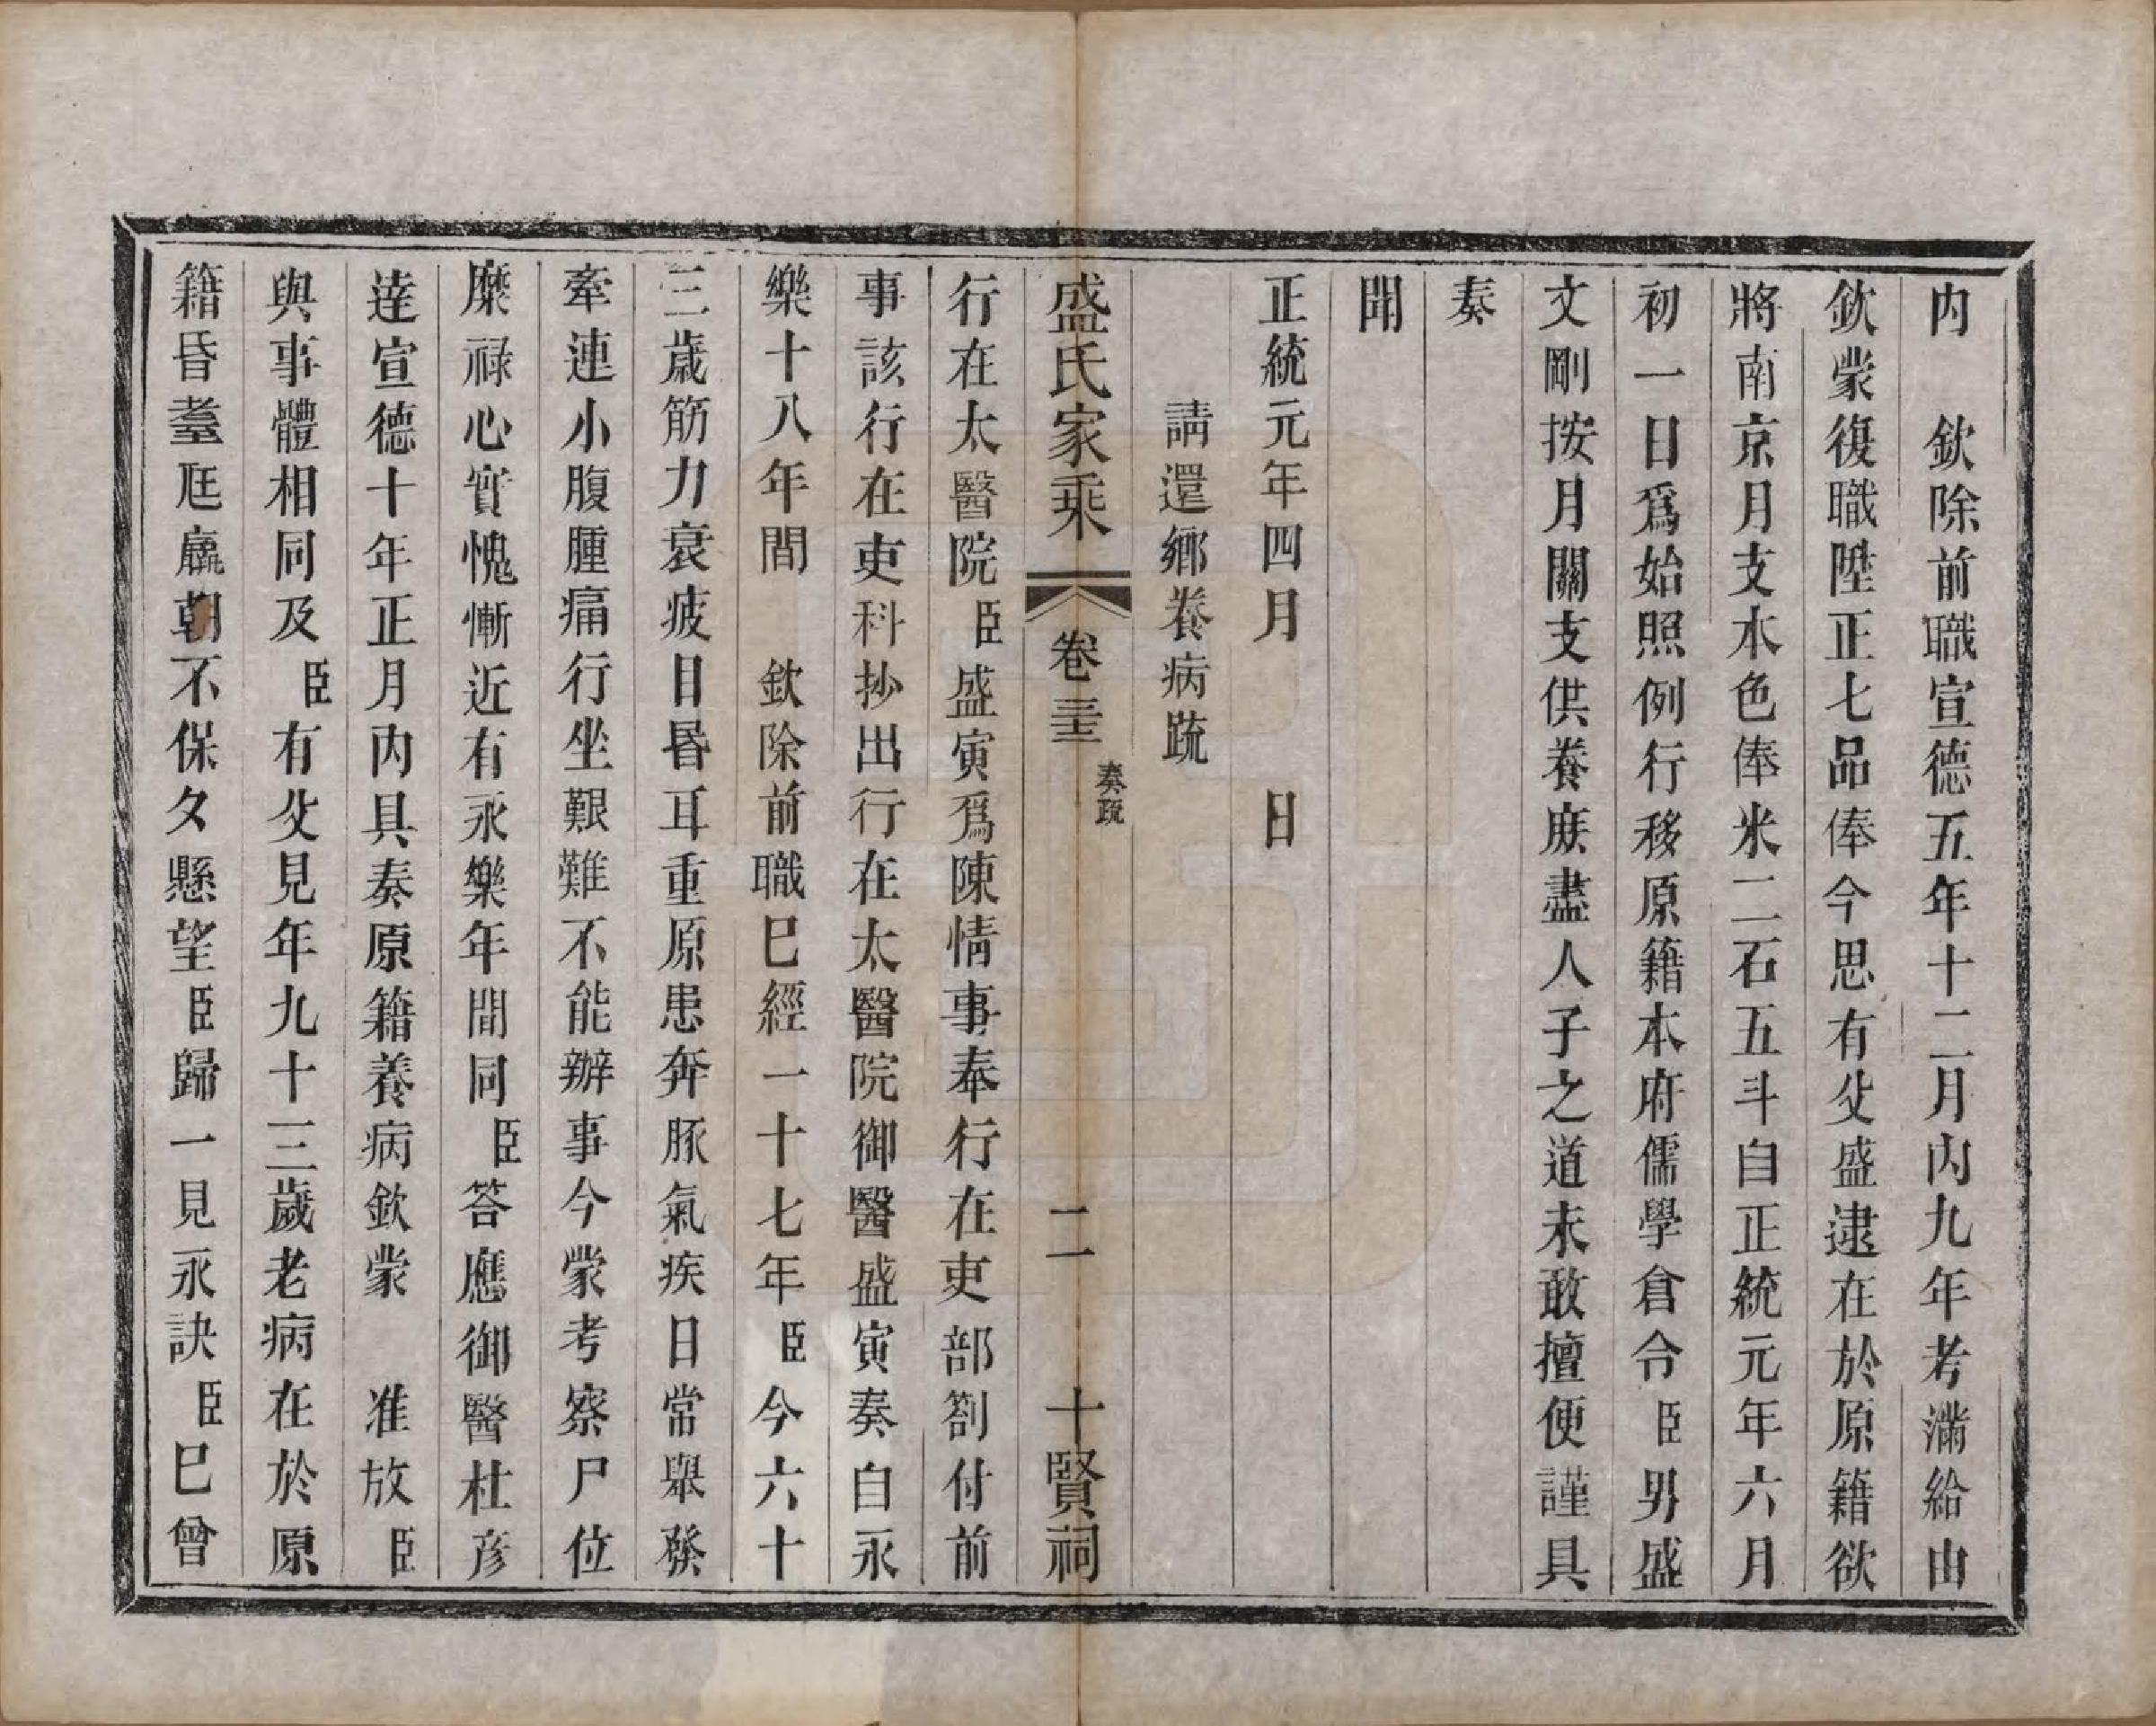 内　欽除前職宣德五年十二月內九年考滿給由
欽蒙復職陞正七品俸今思有父盛逮在於原籍欲
將南京月支本色俸米二石五斗自正統元年六月
初一日爲始照例行移原籍本府儒學倉令臣男盛
文剛按月關支供養庶盡人子之道未敢擅便謹具
奏
聞
正統元年四月　　日
請還鄉養病疏
盛氏家乘　卷三十三　奏疏　二　十賢祠
行在太醫院臣盛寅爲陳情事奉行在吏部劄付前
事該行在吏科抄出行在太醫院御醫盛寅奏自永
樂十八年間　欽除前職已經一十七年臣今六十
三歲筋力衰疲目昬耳重原患奔豚氣疾日常舉發
牽連小腹腫痛行坐艱難不能辦事今蒙考察尸位
糜祿心實愧慚近有永樂年間同臣答應御醫杜彥
逹宣德十年正月內具奏原籍養病欽蒙　准放臣
與事體相同及臣有父見年九十三歲老病在於原
籍昏耋尫羸朝不保夕懸望臣歸一見永訣臣已曾